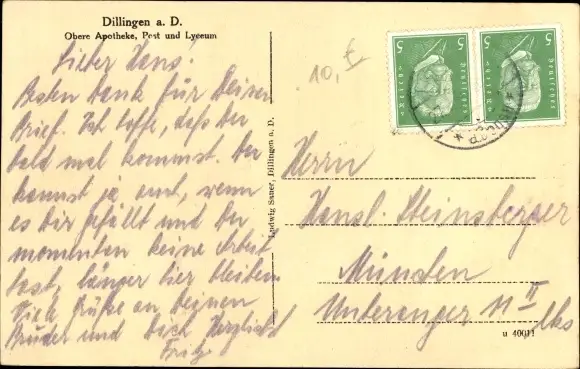 Dillingen a. D.
Obere Apotheke, Post und Lyceum
Lieber Hans!
Besten Dank für Deinen
Brief. Ich hoffe, dass Du
bald mal kommst. Du
kannst ja, wenn
es Dir gefällt und Du
momentan keine Arbeit
hast, länger hier bleiben.
Viel Grüße an Deinen
Bruder und Dich herzlichst
Fritz
10,-
5 5
Deutsches Reich
Deutsches Reich
Ludwig Sauer, Dillingen a. D.
Herrn
Hansl Steinsberger
München
Unteranger 11 II
u 40011